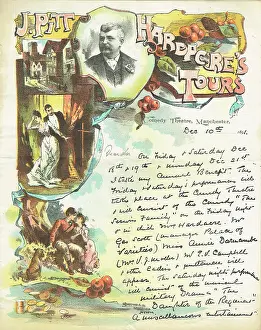 J. PITT
HARDACRE'S
TOURS
Comedy Theatre, Manchester,
Dec 10th 1891.
On Friday & Saturday Dec
18th & 19th & Monday Dec 21st
I take my Annual Benefit. The
Friday & Saturday performances will
take place at the Comedy Theatre
& will consist of the Comedy "The
Serious Family" on the Friday night
Mr
Geo Scott (manager Palace of
Varieties) Miss Annie
(Mrs Mr T. H. Campbell
& other Ladies & gentlemen will
appear. The Saturday night performance
will consist of the musical
military Drama "The
Daughter of the Regiment"
A miscellaneous entertainment